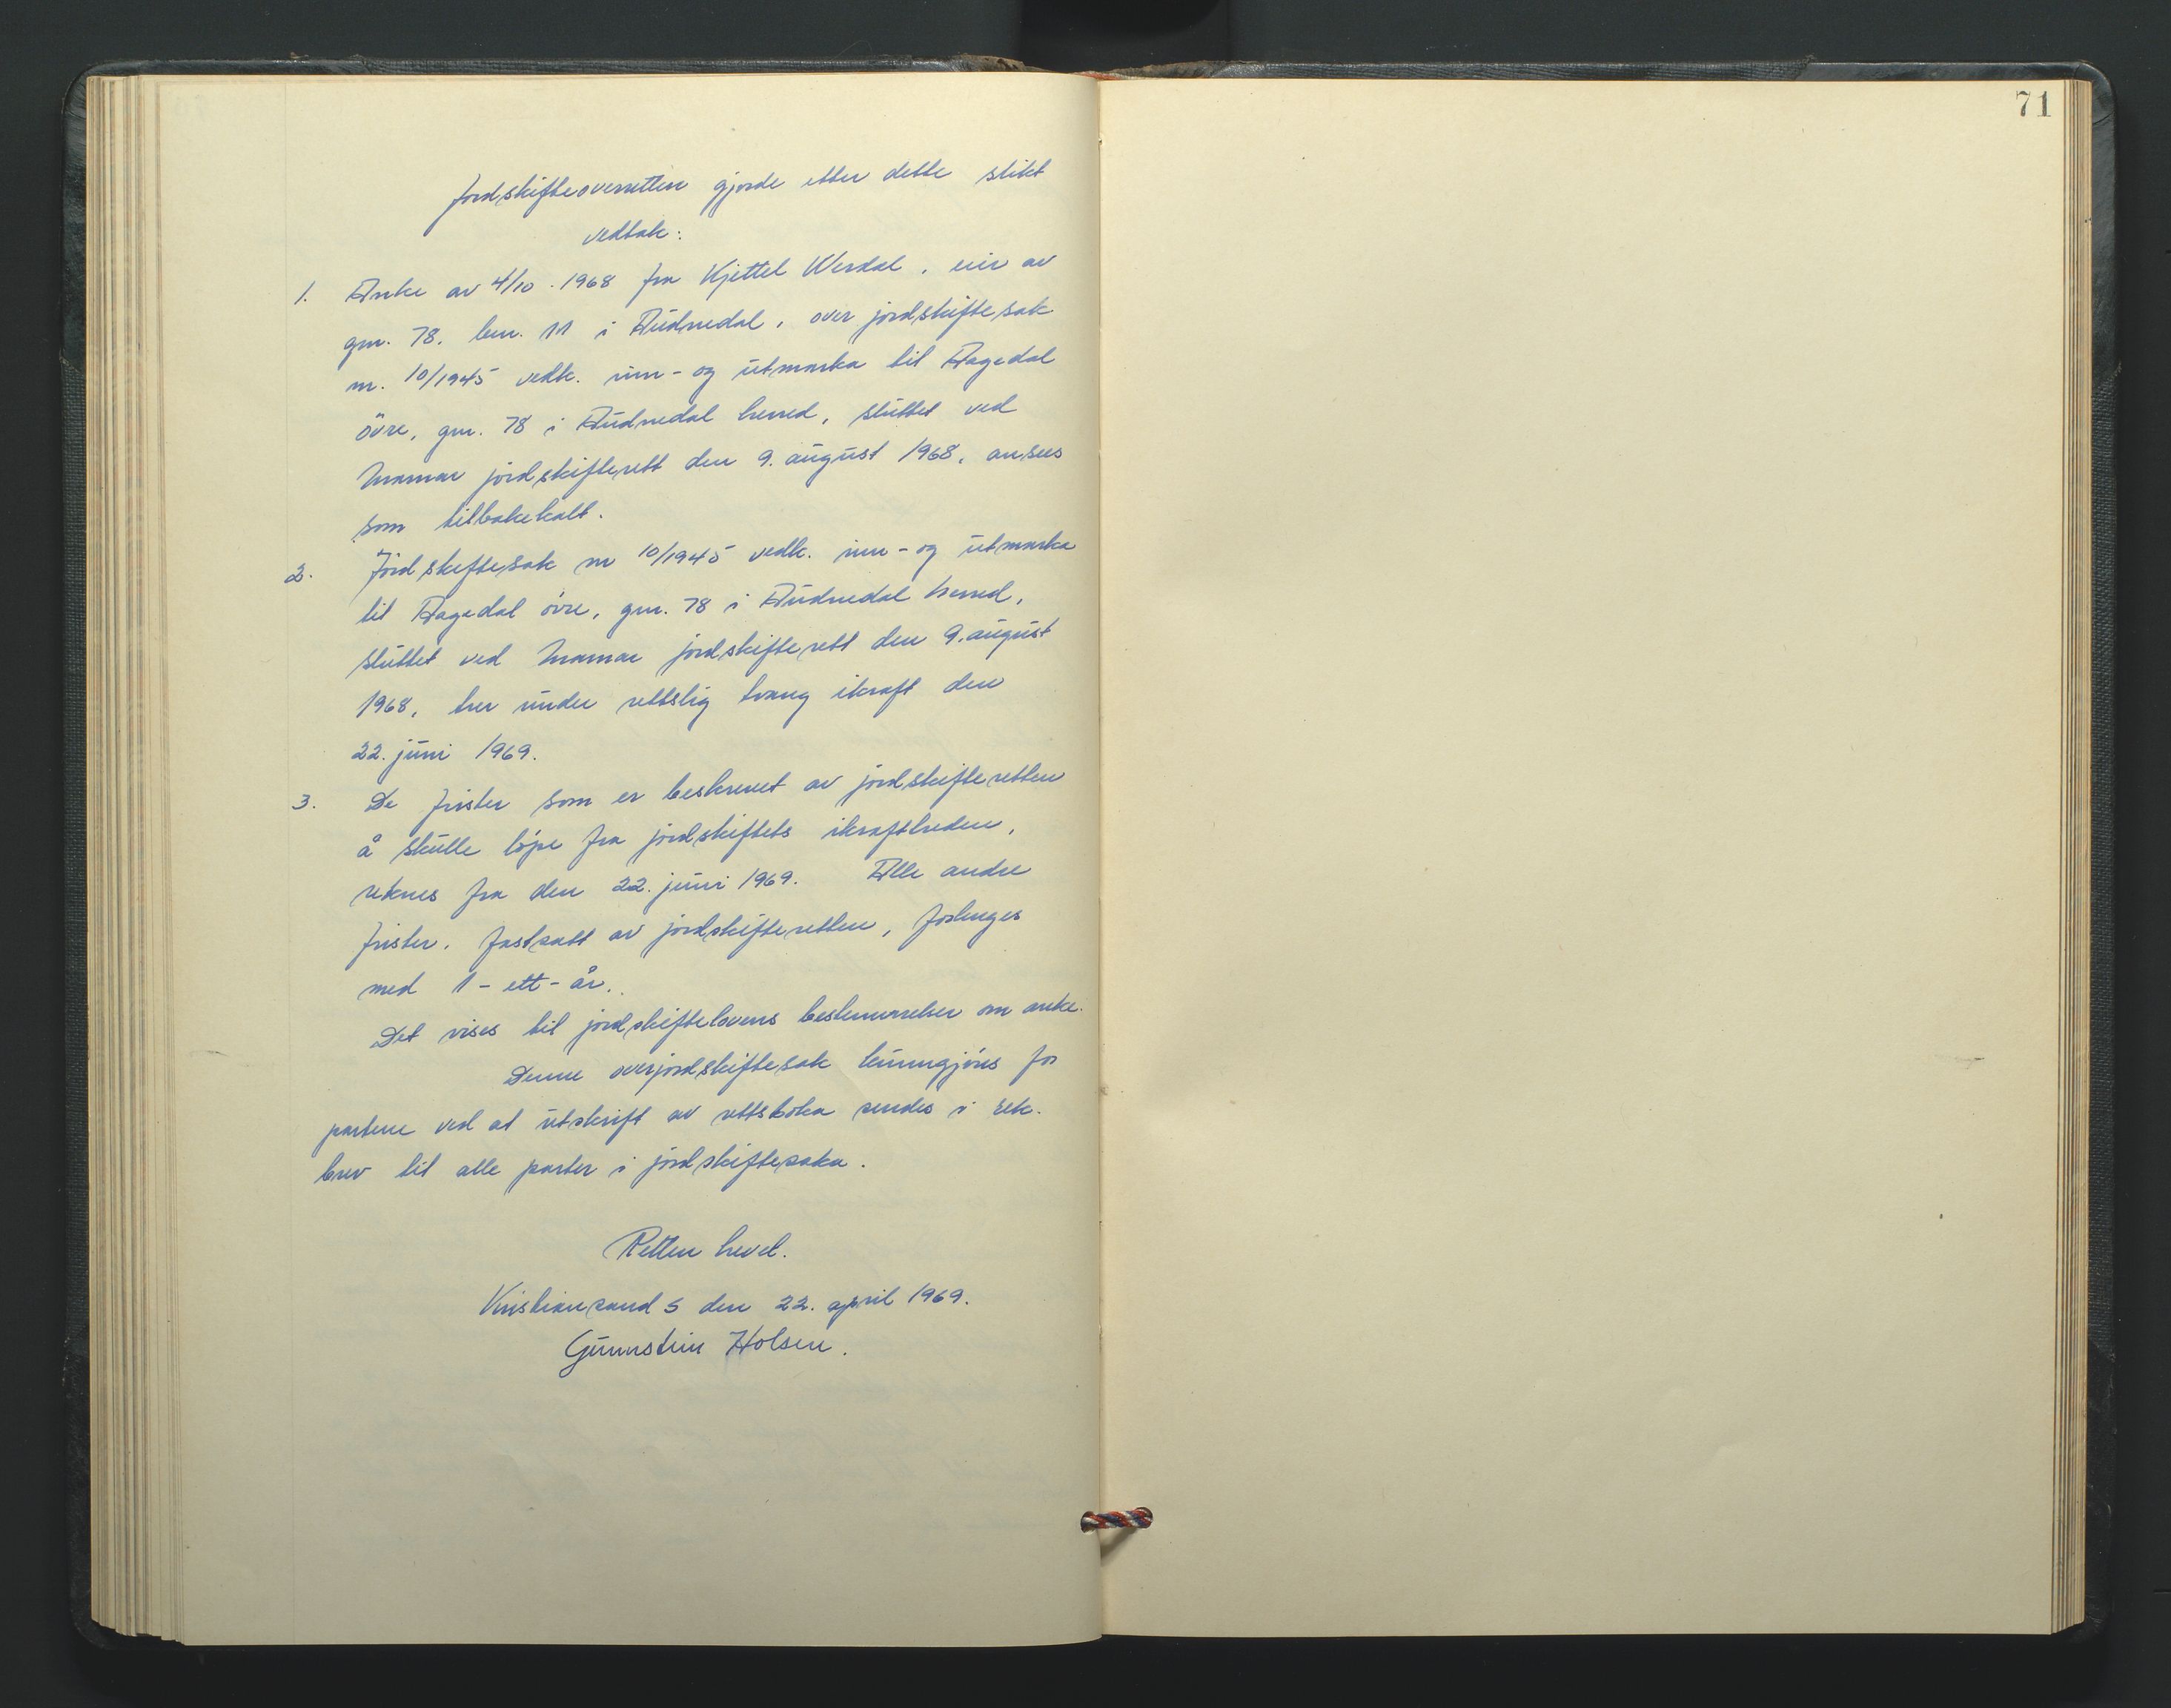 Jordskifteoverretten gjorde etter dette slikt
vedtak:
1. Anke av 4/10.1968 fra Kjettel Werdal, eier av
gnr. 78, bnr. 11 i Audnedal, over jordskiftesak
nr. 10/1945 vedk. inn- og utmarka til Aagedal
övre, gnr. 78 i Audnedal herred, sluttet ved
Marnar jordskifterett den 9. august 1968, ansees
som tilbakekalt.
2. Jordskiftesak nr 10/1945 vedk. inn- og utmarka
til Aagedal övre, gnr. 78 i Audnedal herred,
sluttet ved Marnar jordskifterett den 9. august
1968, trer under rettslig tvang ikraft den
22. juni 1969.
3. De frister som er beskrevet av jordskifteretten
å skulle löpe fra jordskiftets ikrafttreden,
reknes fra den 22. juni 1969. Alle andre
frister, fastsatt av jordskifteretten, forlenges
med 1 - ett - år.
Det vises til jordskiftelovens bestemmelser om anke.
Denne overjordskiftesak kunngjöres for
partene ved at utskrift av rettsboka sendes i rek.
brev til alle parter i jordskiftesaka.
Retten hevet.
Kristiansand S den 22. april 1969.
Gunnstein Holsen.
71